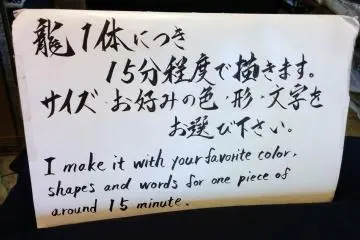 龍1体につき
15分程度で描きます。
サイズ・お好みの色・形・文字を
お選び下さい。
I make it with your favorite color,
shapes and words for one piece of
around 15 minute.